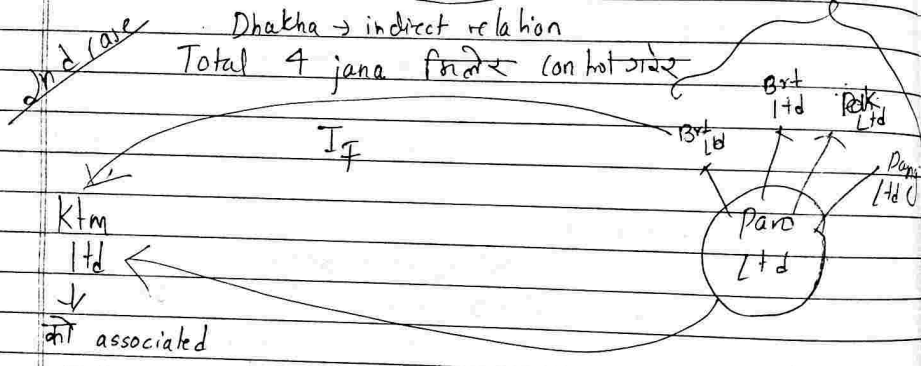 2nd case
Dhakha → indirect relation
Total 4 jana मिलेर control गरेर
Brt
ltd
Brt
Ltd
Pak
Ltd
IF
Ktm
ltd
Paro
Ltd
को associated